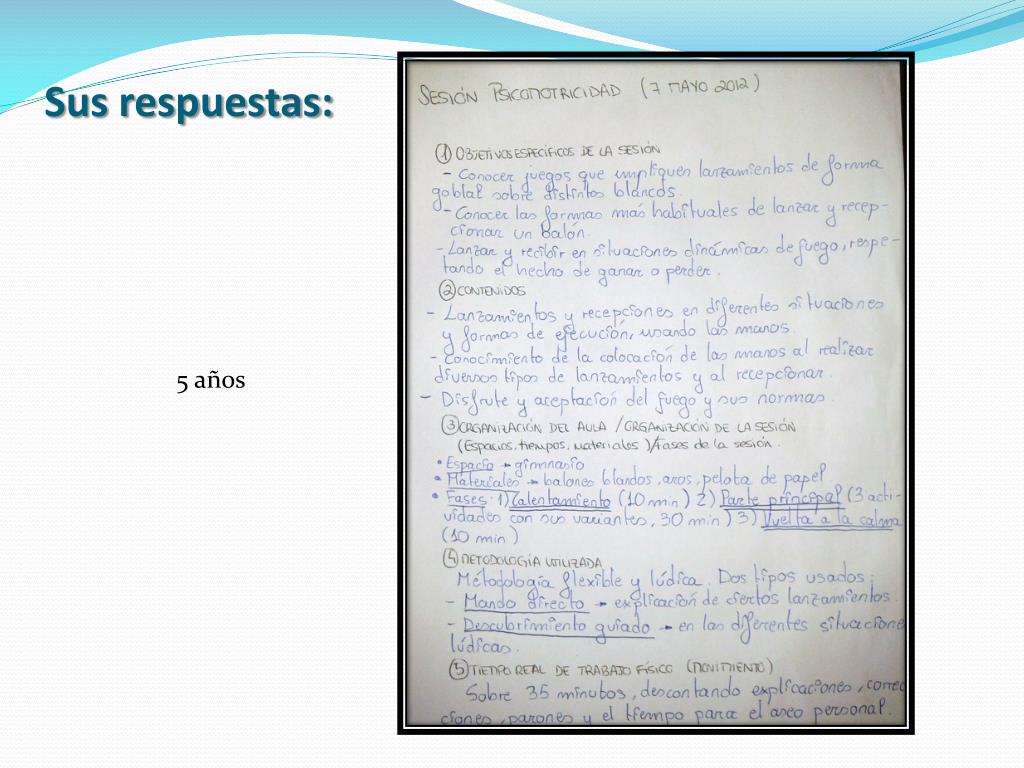 Sus respuestas:
5 años
SESIÓN PSICOMOTRICIDAD (7 MAYO 2012)
① OBJETIVOS ESPECÍFICOS DE LA SESIÓN
- Conocer juegos que impliquen lanzamientos de forma
goblal sobre distintos blancos.
- Conocer las formas más habituales de lanzar y recep-
cionar un balón.
- Lanzar y recibir en situaciones dinámicas de juego, respe-
tando el hecho de ganar o perder.
② CONTENIDOS
- Lanzamientos y recepciones en diferentes situaciones
y formas de ejecución, usando las manos.
- Conocimiento de la colocación de las manos al realizar
diversos tipos de lanzamientos y al recepcionar.
- Disfrute y aceptación del juego y sus normas.
③ ORGANIZACIÓN DEL AULA / ORGANIZACIÓN DE LA SESIÓN
(Espacios, tiempos, materiales)/Fases de la sesión.
• Espacio → gimnasio
• Materiales → balones blandos, aros, pelota de papel
• Fases: 1) Calentamiento (10 min) 2) Parte principal (3 acti-
vidades con sus variantes, 30 min) 3) Vuelta a la calma
(10 min)
④ METODOLOGÍA UTILIZADA
Métodología flexible y lúdica. Dos tipos usados:
- Mando directo → explicación de ciertos lanzamientos.
- Descubrimiento guiado → en las diferentes situacione
lúdicas.
⑤ TIEMPO REAL DE TRABAJO FÍSICO (MOVIMIENTO)
Sobre 35 minutos, descontando explicaciones, correc
ciones, parones y el tiempo para el aseo personal.